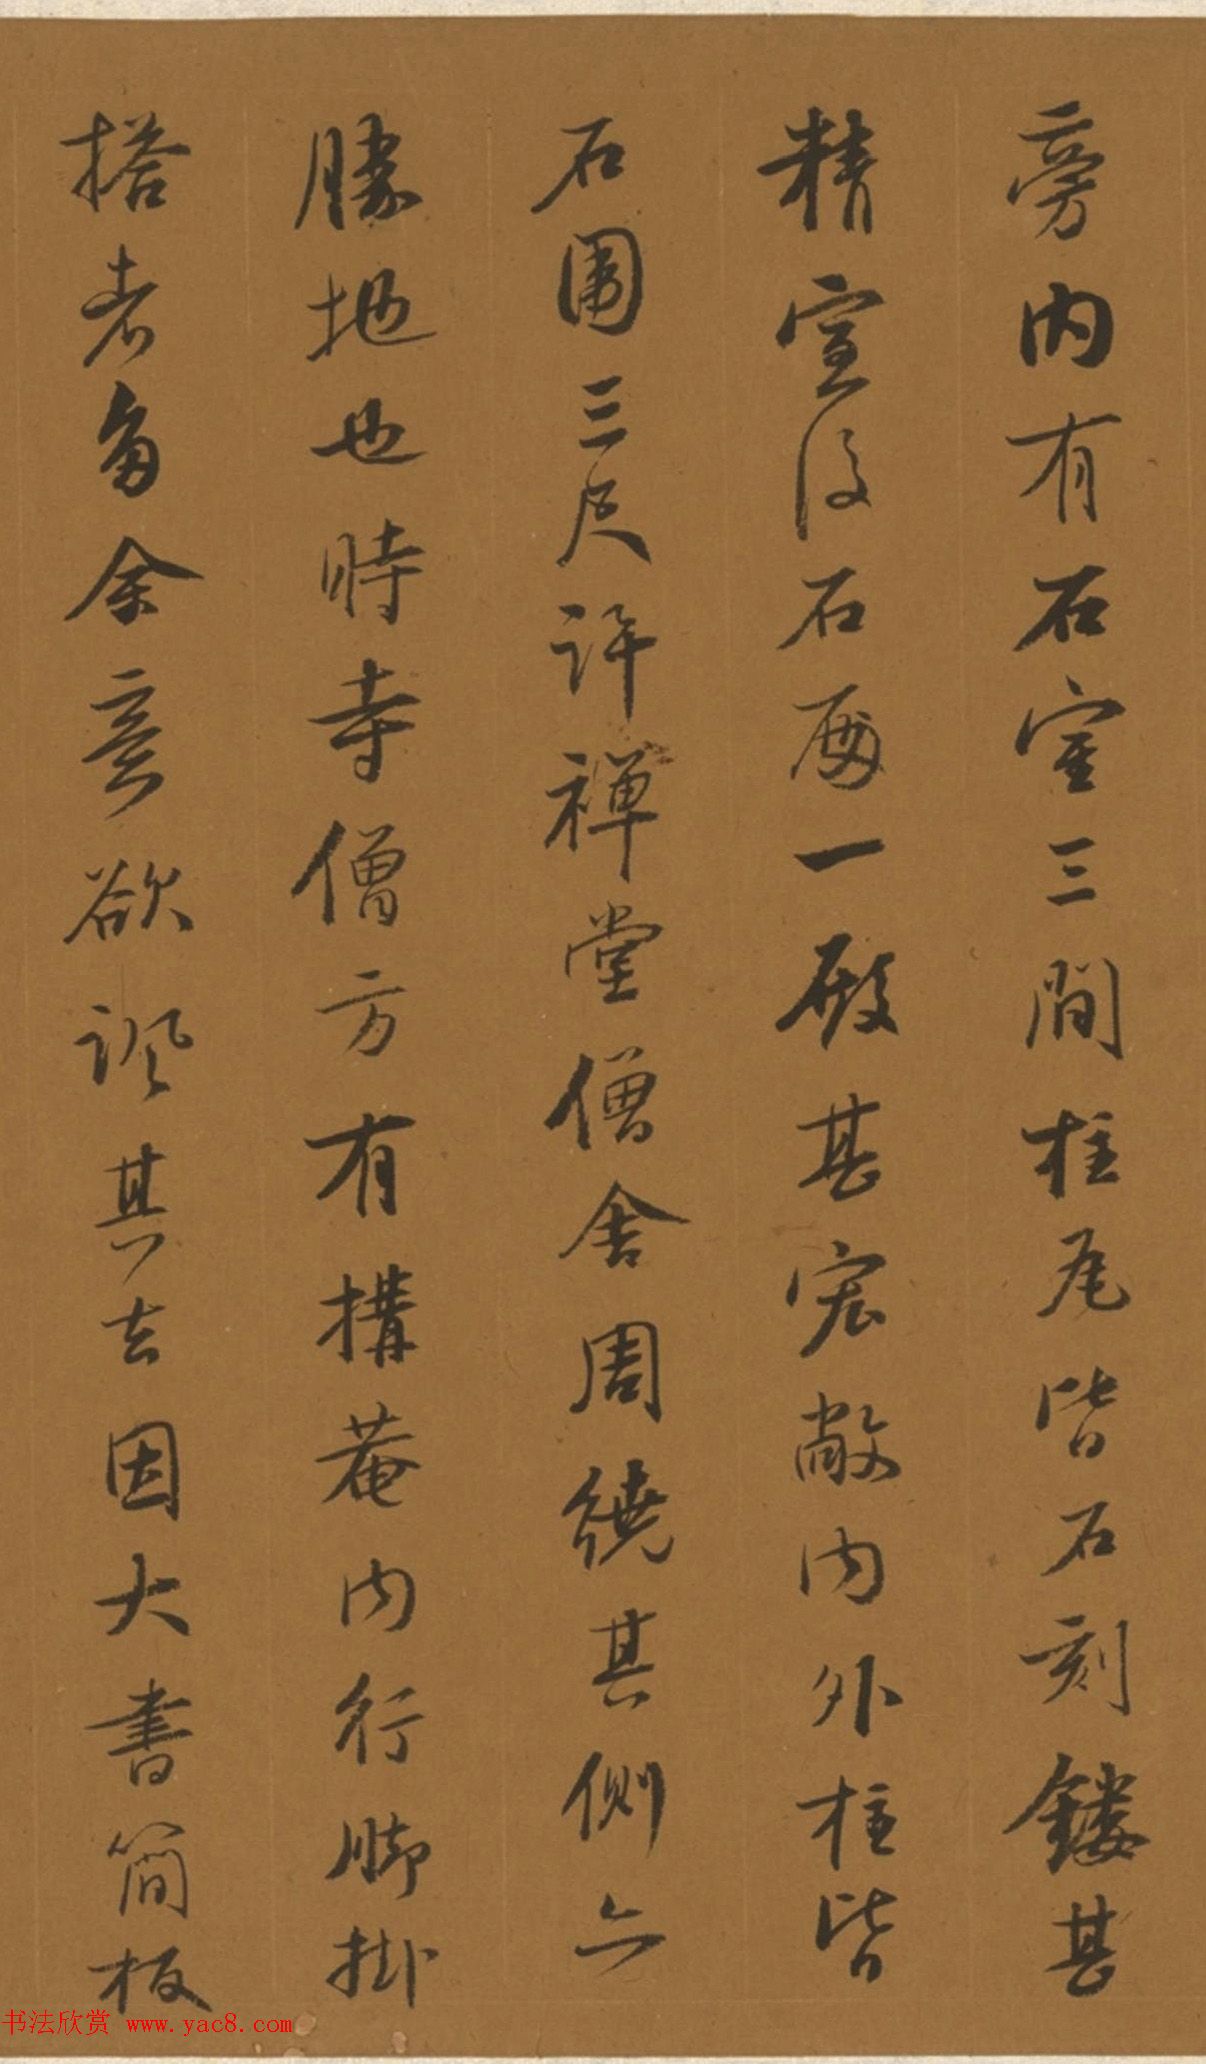 旁内有石室三間柱尾皆石刻鏤甚
精室後石有一殿甚宏敞内外柱皆
石圍三尺許禪堂僧舍周繞其側亦
勝地也時寺僧方有搆菴内行腳掛
搭者多余意欲諷其去因大書簡板
书法欣赏 www.yac8.com